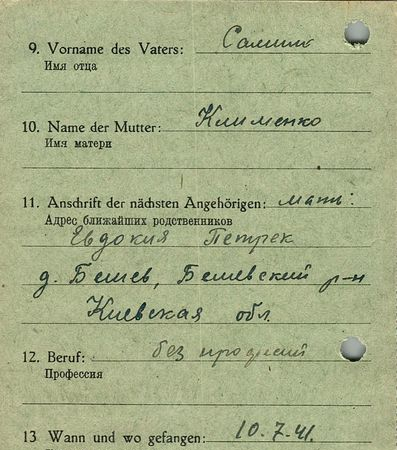 9. Vorname des Vaters:
Имя отца
10. Name der Mutter: Клименко
Имя матери
11. Anschrift der nächsten Angehörigen: мать:
Адрес ближайших родственников
Евдокия Петрек
д. Бешев, Бешевский р-н
Киевская обл.
12. Beruf: без
Профессия
13 Wann und wo gefangen: 10.7.41.